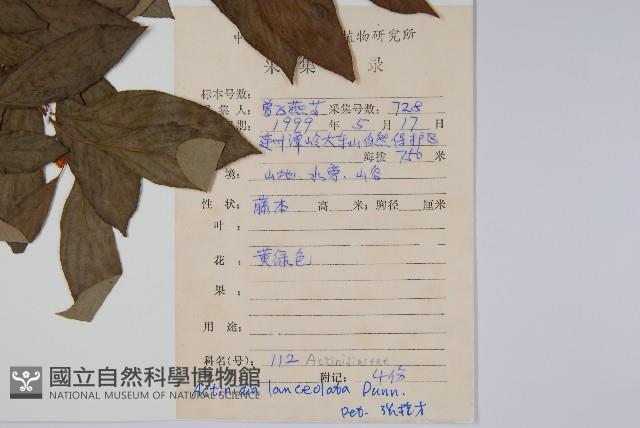 中 植物研究所
采集 录
标本号数:
采集人: 曾飞燕 采集号数: 728
期: 1999 年 5 月 17 日
潭岭大东山自然保护区
海拔 750 米
境: 山地、水旁、山谷
性状: 藤本 高 米; 胸径 厘米
叶:
花: 黄绿色
果:
用途:
科名(号): 112 Actinidiaceae
附记: 4份
Actinidia lanceolata Dunn.
Det. 张
國立自然科學博物館
NATIONAL MUSEUM OF NATURAL SCIENCE